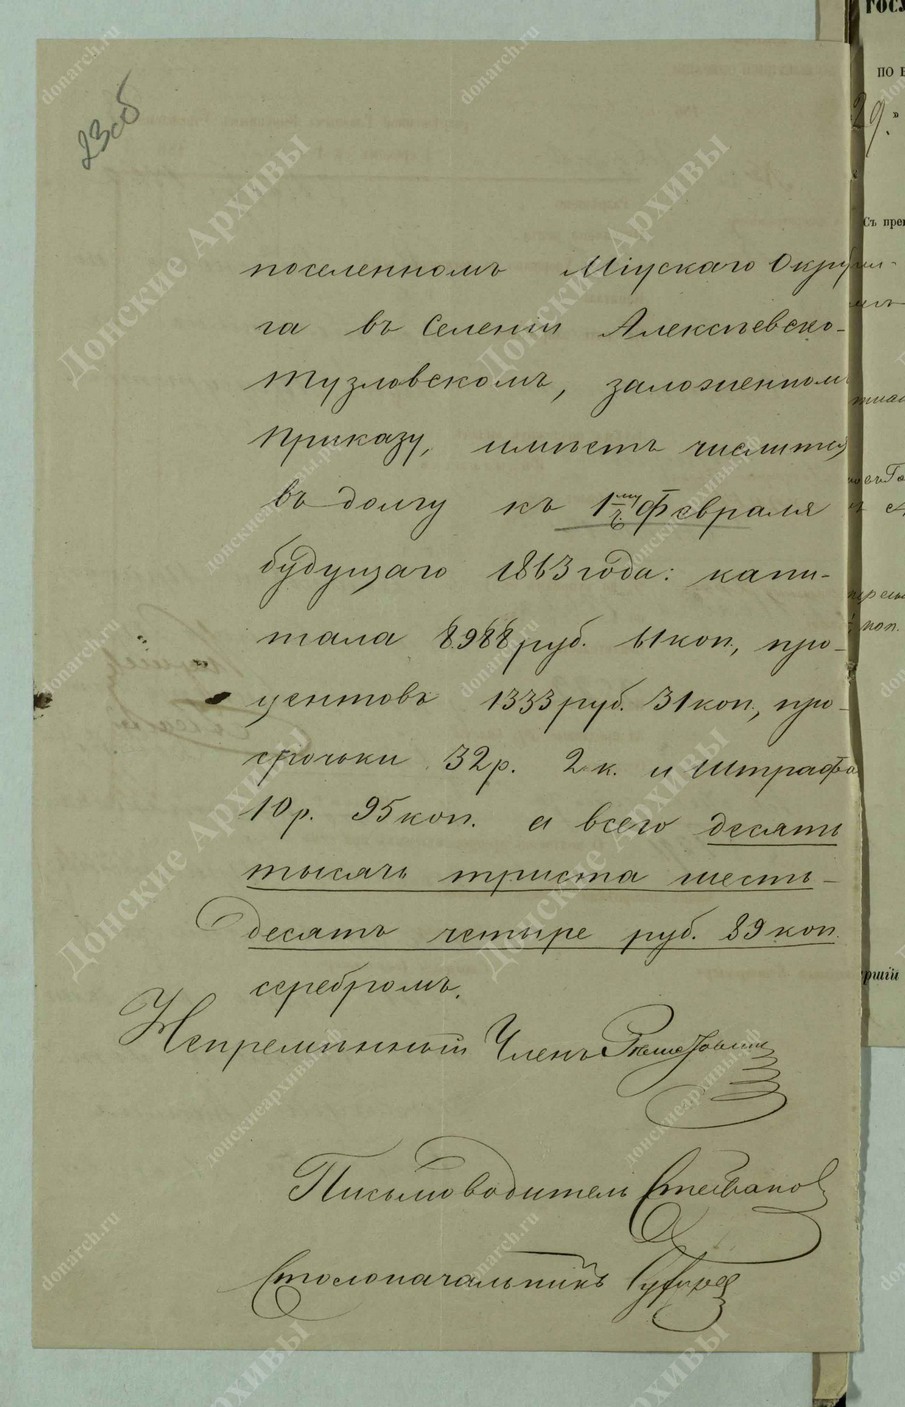 23об
поселенномъ Міускаго Окру-
га въ Селеніи Алексѣевско-
Тузловскомъ, заложенномъ
Приказу, имѣетъ числится
въ долгу къ 1му Февраля
будущаго 1863 года: капи-
тала 8988 руб. 61 коп., про-
центовъ 1333 руб. 31 коп., про-
срочьки 32 р. 2 к. и Штрафа
10 р. 95 коп. а всего десять
тысячь триста шесть-
десятъ четыре руб. 89 коп.
серебромъ.
Непремѣнный Членъ
Письмоводитель Степанов
Столоначальникъ